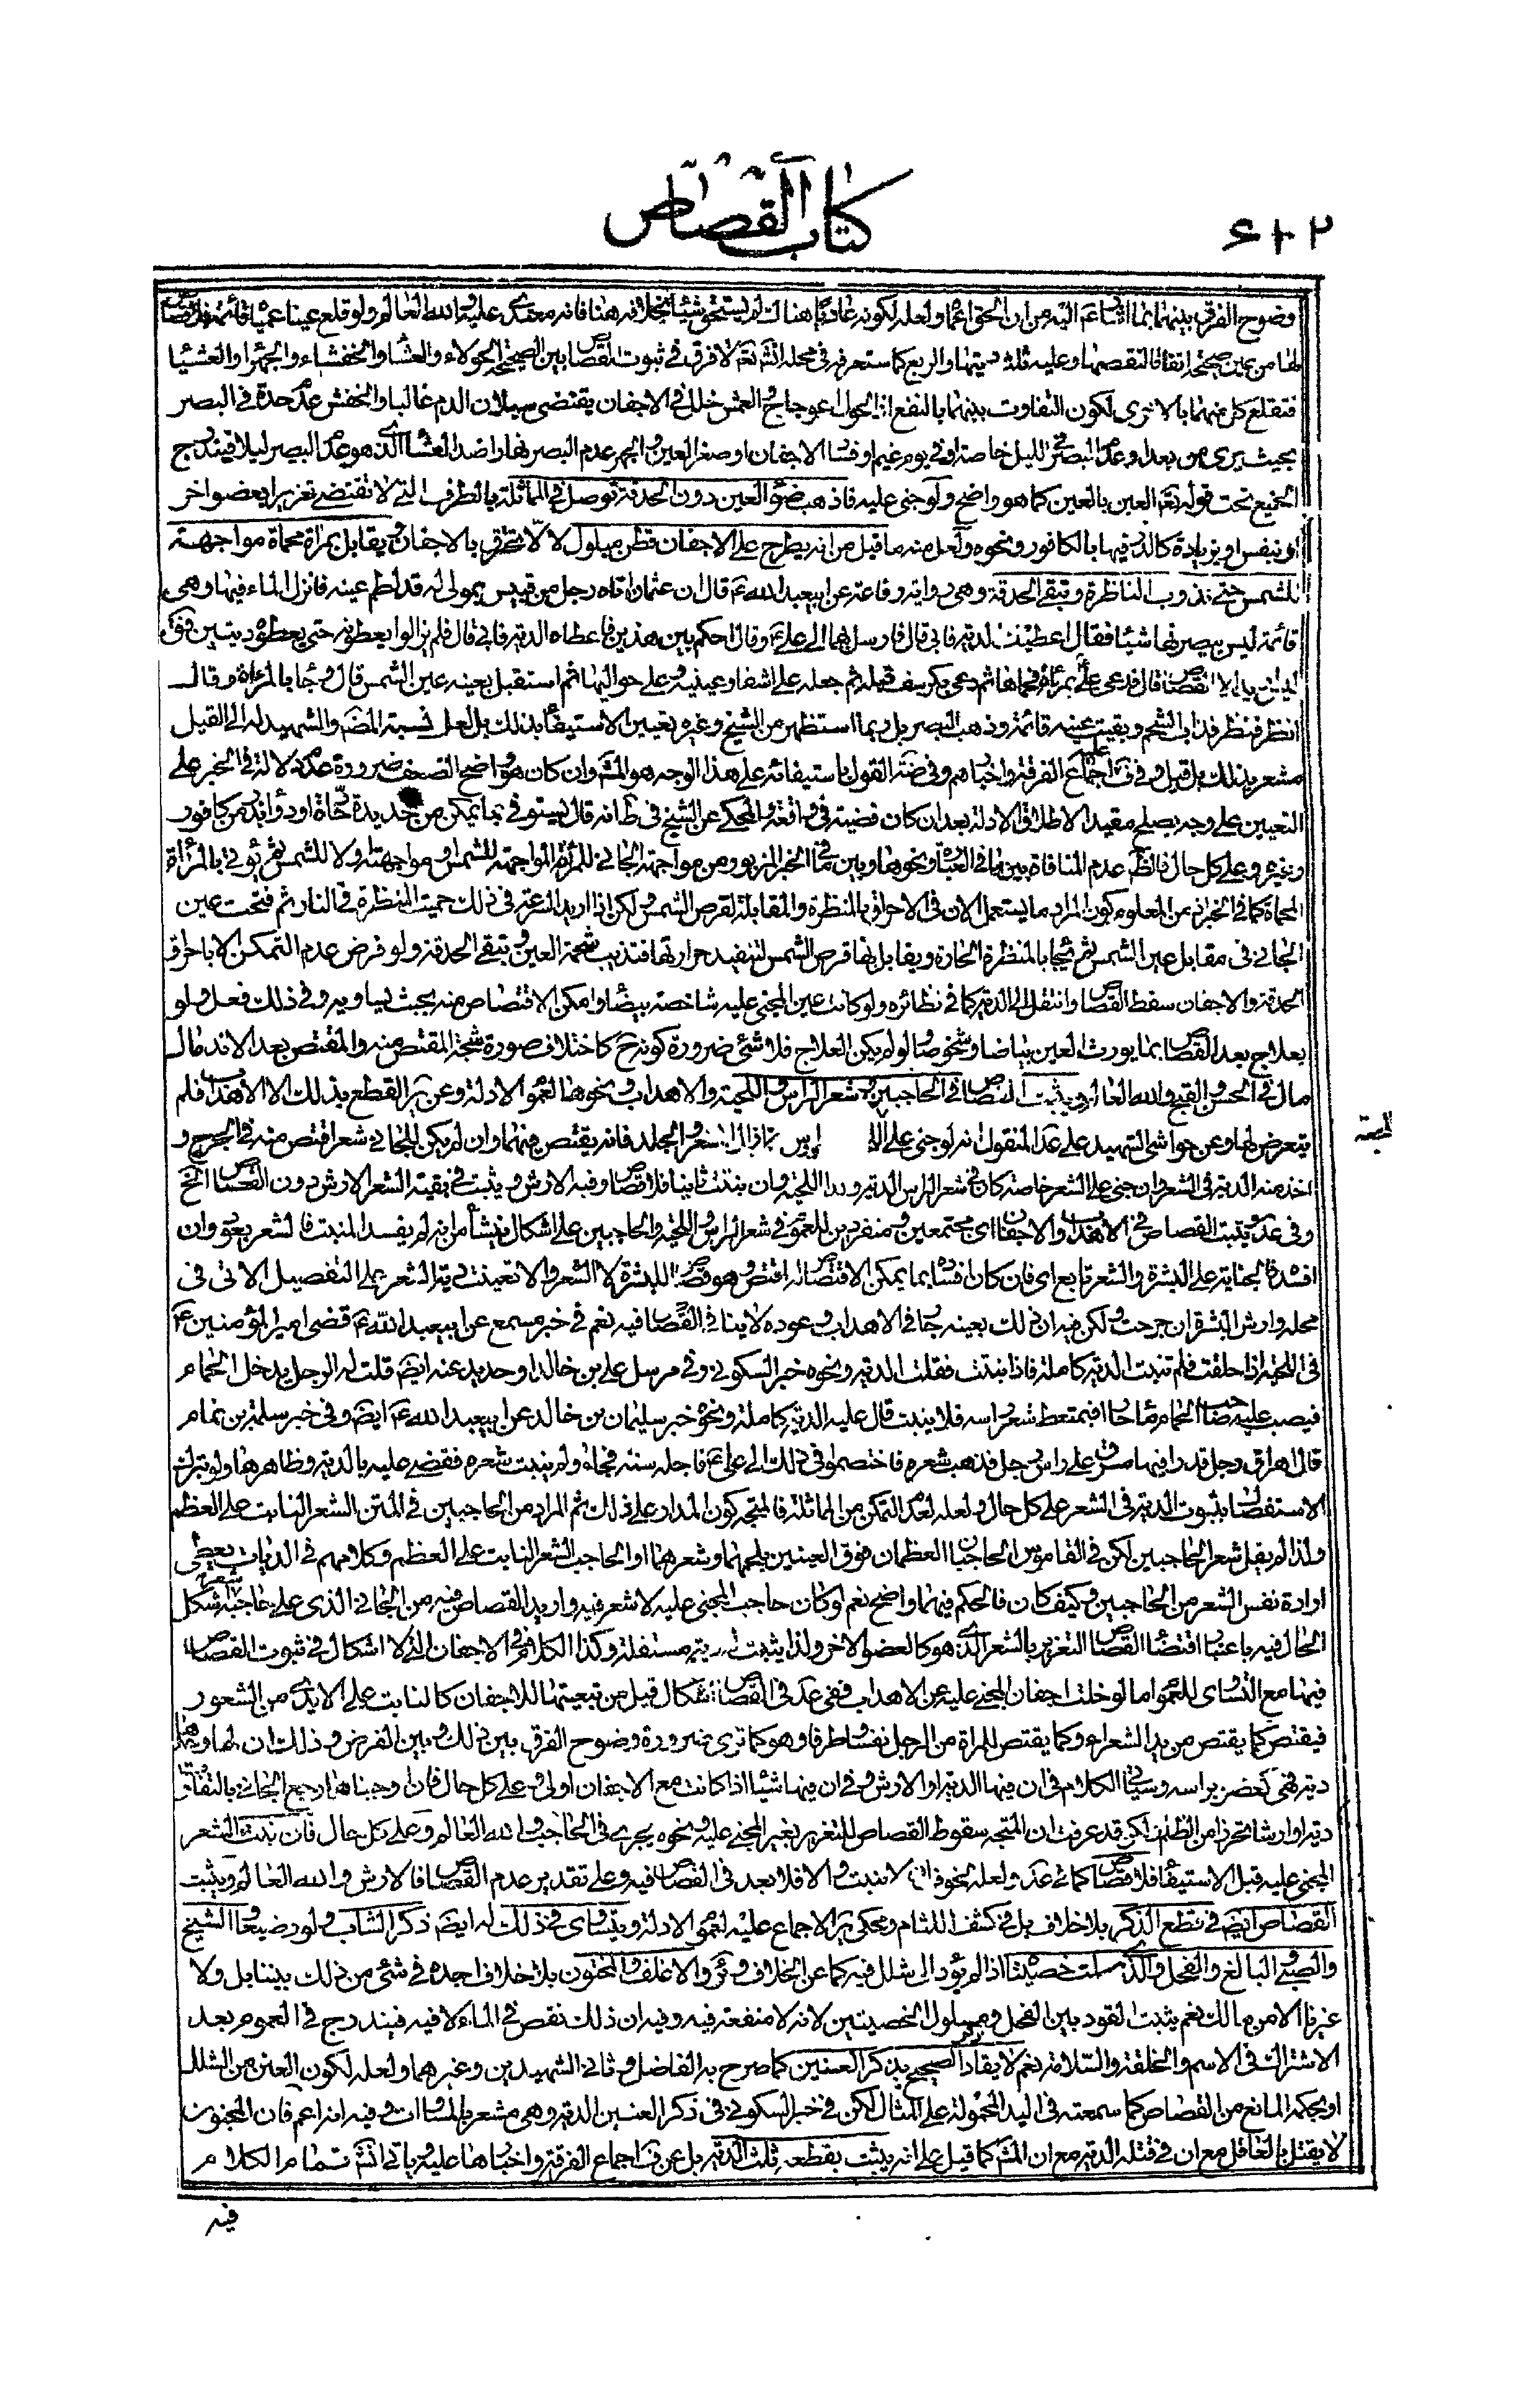 كتاب القصاص
۶۰۲
وضوح الفرق بينهما بما من ان الحق ولعله لكونه هناك لم يستحق شيئا بخلافه هنا فانه معتدى عليه والله العالم ولو قلع عينا عمياء قائمة فلا قصاص
لها من عين صحيحة اتفاقا لنقصها وعليه ثلث ديتها او الربع كما ستعرفه في محله انش تعم لا فرق في ثبوت القصاص بين الصحيحة والحولاء والعشاء والخفشاء والجهراء والعشياء
فتقلع كل منهما بالاخرى لكون التفاوت بينهما بالنفع اذ الحول اعوجاج والعمش خلل في الاجفان يقتضى سيلان الدم غالبا والخفش عدم حدة في البصر
بحيث يرى من بعد او عدم البصر في الليل خاصة او في يوم غيم او فساد الاجفان او صغر العين والجهر عدم البصر نهارا ضد العشا الذى هو عدم البصر ليلا فيندرج
الجميع تحت قوله تعم العين بالعين كما هو واضح ولو جنى عليه فاذهب ضوء العين دون الحدقة توصل في المماثلة بالطرف التى لا تقتضى تغريرا بعضو اخر
او بنفس او بزيادة كالذر فيها بالكافور ونحوه ولعل منه ما قيل من انه يطرح على الاجفان قطن مبلول لئلا تحترق بالاجفان ويقابل بمراة محماة مواجهة
للشمس حتى تذوب الناظرة وتبقى الحدقة وهى رواية رفاعة عن ابيعبد الله ع قال ان عثمان اتاه رجل من قيس بمولى له قد لطم عينه فانزل الماء فيها وهى
قائمة ليس يبصر بها شيئا فقال اعطيك الدية فابى قال فارسل بهما الى على ع وقال احكم بين هذين فاعطاه الدية فابى قال فلم يزالوا يعطونه حتى يعطوه ديتين فقال
ليس اريد الا القصاص قال فدعى على ع بمرآة فحماها ثم دعى بكرسف فبله ثم جعله على اشفار عينيه وعلى حواليها ثم استقبل بعينه عين الشمس قال وجاء بالمراة وقال
انظر فنظر فذاب الشحم وبقيت عينه قائمة وذهب البصر بل ربما استظهر من الشيخ وغيره تعيين الاستيفاء بذلك بل لعل نسبة المصنف والشهيد له الى القيل
مشعر بذلك بل قيل وفي ف عليه اجماع الفرقة واخبارهم وفي ضة القول باستيفائه على هذا الوجه هو المشهور وان كان هو واضح الضعف ضرورة عدم دلالة في الخبر على
التعيين على وجه يصلح مقيدا لاطلاق الادلة بعد ان كان قضية في واقعة والمحكى عن الشيخ في ط انه قال يستوفى بما يمكن من حديدة محماة او دواء يذر من كافور
وغيره وعلى كل حال فالظ عدم المنافاة بين ما في العبارة ونحوها وبين ما في الخبر المزبور من مواجهة الجانى للمرآة المواجهة للشمس او مواجهته اولا للشمس ثم يؤتى بالمرآة
المحماة كما في الخبر اذ من المعلوم كون المراد ما يستعمل الان في الاحراق بالمنظرة والمقابلة لقرص الشمس ولكن اذا اريد السرعة في ذلك حميت المنظرة في النار ثم فتحت عين
الجانى في مقابل عين الشمس ثم يجاء بالمنظرة الحارة ويقابل بها قرص الشمس لتفيد حرارتها فتذيب شحمة العين وتبقى الحدقة ولو فرض عدم التمكن الا باحراق
الحدقة والاجفان سقط القصاص وانتقل الى الدية كما في نظائره ولو كانت عين المجنى عليه شاخصة بيضاء وامكن الاقتصاص منه بحيث يساويه في ذلك فعل ولو
بعلاج بعد القصاص بما يورث العين بياضا وشخوصا ولو لم يكن العلاج فلا شئ ضرورة كونه ح كاختلاف صورة شجة المقتص منه والمقتص بعد الاندمال
مال في الحسن والقبح والله العالم ويثبت القصاص في الحاجبين وشعر الراس واللحية والاهداب ونحوها لعموم الادلة وعن ير القطع بذلك الا الاهداب فلم
يتعرض لها وعن حواشى الشهيد على عد المنقول انه لو جنى على الشعر والجلد فانه يقتص منهما وان لم يكن للجانى شعر اقتص منه في الجرح و
اخذ منه الدية في الشعر وان جنى على الشعر خاصة كان في شعر الراس الدية وكذا اللحية وان نبتت ثانيا فلا قصاص وفيه الارش ويثبت في بقية الشعر الارش دون القصاص الخ
وفى عد ويثبت القصاص في الاهداب والاجفان اى مجتمعين ومنفردين للعموم وفي شعر الراس واللحية والحاجبين على اشكال ينشأ من انه لم يفسد المنبت فالشعر يعود وان
افسده فالجناية على البشرة والشعر تابع اى فان كان افساد بما يمكن الاقتصاص له اقتص وهو قصاص للبشرة لا الشعر والا تعينت دية الشعر على التفصيل الاتى في
محله وارش البشرة ان جرحت ولكن فيه ان ذلك بعينه جار في الاهداب وعوده لا ينافى القصاص فيه نعم في خبر مسمع عن ابيعبد الله ع قضى امير المؤمنين ع
في اللحية اذا حلقت فلم تنبت الدية كاملة فاذا نبتت فثلث الدية ونحوه خبر السكونى وفي مرسل على بن خالد او حديد عنه ايضم قلت له الرجل يدخل الحمام
فيصب عليه صاحب الحمام ماء حارا فيمتعط شعر راسه فلا ينبت قال عليه الدية كاملة ونحوه خبر سليمان بن خالد عن ابيعبد الله ع ايضم وفي خبر سلمة بن تمام
قال اهراق رجل قدرا فيها مرق على راس رجل فذهب شعره فاختصموا في ذلك الى على ع فاجله سنة فجاء ولم ينبت شعره فقضى عليه بالدية وظاهرهما ولو بترك
الاستفصال ثبوت الدية في الشعر على كل حال ولعله لعدم التمكن من المماثلة فالمتجه كون المدار على ذلك ثم المراد من الحاجبين في المتن الشعر النابت على العظم
ولذا لم يقل شعر الحاجبين لكن في القاموس الحاجبان العظمان فوق العينين بلحمهما وشعرهما او الحاجب الشعر النابت على العظم وكلامهم في الديات يعطى
ارادة نفس الشعر من الحاجبين وكيف كان فالحكم فيهما واضح نعم لو كان حاجب المجنى عليه لا شعر فيه واريد القصاص فيه من الجانى الذى على حاجبه شعر اشكل
الحال فيه باعتبار اقتضاء القصاص التغرير بالشعر الذى هو كالعضو الاخر ولذا يثبت له دية مستقلة وكذا الكلام في الاجفان التى لا اشكال في ثبوت القصاص
فيها مع التساوى للعموم اما لو خلت اجفان المجنى عليه عن الاهداب ففى عد في القصاص اشكال قيل من تبعيتها للاجفان كالنابت على الايدى من الشعور
فيقتص كما يقتص من يد الشعراء وكما يقتص للمراة من الرجل نفسا وطرفا وهو كما ترى ضرورة وضوح الفرق بين ذلك وبين الفرض وذلك ان لها وحدها
دية فهى كعضو براسه وسياتى الكلام في ان فيها الدية او الارش وفي ان فيها شيئا اذا كانت مع الاجفان اولى وعلى كل حال فان اوجبناها رجع الجانى بالتفاوت
دية او ارشا تحرزا من الظلم لكن قد عرفت ان المتجه سقوط القصاص للتغرير بغير المجنى عليه ونحوه يجرى في الحاجب والله العالم وعلى كل حال فان نبت الشعر
المجنى عليه قبل الاستيفاء فلا قصاص كما في عد ولعله لخوف ان لا تنبت والا فلا بعد في القصاص فيه وعلى تقدير عدم القصاص فالارش والله العالم ويثبت
القصاص ايضم في قطع الذكر بلا خلاف بل في كشف اللثام ومحكى ير الاجماع عليه لعموم الادلة ويتساوى في ذلك له ايضم ذكر الشاب ولو رضيعا والشيخ
والصبى والبالغ والفحل والذى سلت خصيتاه اذا لم يؤد الى شلل فيه كما عن الخلاف وئر والاغلف والمختون بلا خلاف اجده في شئ من ذلك بيننا بل ولا
غيرنا الا من مالك نعم يثبت القود بين الفحل ومسلول الخصيتين لانه لا منفعة فيه وفيه ان ذلك نقص في الماء لا فيه فيندرج في العموم بعد
الاشتراك في الاسم والخلقة والسلامة نعم لا يقاد الصحيح بذكر العنين كما صرح به الفاضل وثانى الشهيدين وغيرهما ولعله لكون العنن من الشلل
او بحكمه المانع من القصاص كما سمعته في اليد المحمولة على المثال لكن في خبر السكونى في ذكر العنين الدية وهى مشعر بالمساوات وفيه انه اعم فان المجنون
لا يقتل بالعاقل مع ان في قتله الدية مع ان المشهور كما قيل على انه يثبت بقطعه ثلث الدية بل عن ف اجماع الفرقة واخبارها عليه وياتى انش تمام الكلام
فيه